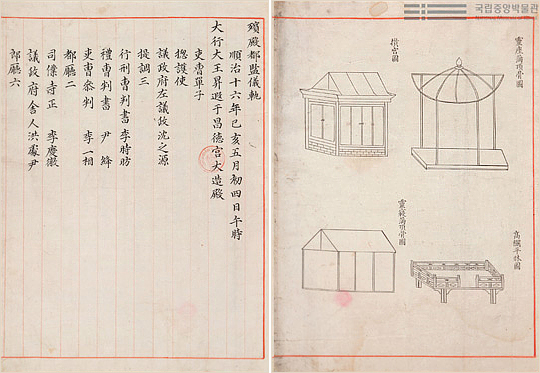 殯殿都監儀軌
順治十六年己亥五月初四日午時
大行大王昇遐于昌德宮大造殿
吏曹單子
摠護使
議政府左議政沈之源
提調三
行刑曹判書李時昉
禮曹判書 尹絳
吏曹參判 李一相
都廳二
司僕寺正 李慶徽
議政府舍人洪處尹
郎廳六
국립중앙박물관
靈座滿頂骨圖
攢宮圖
高欄平床圖
靈寢滿頂骨圖